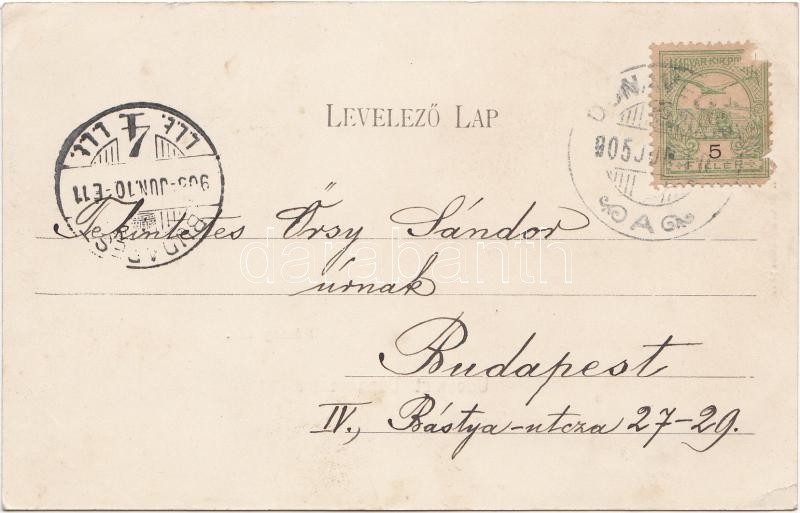 LEVELEZŐ LAP
MAGYAR KIR. POSTA
5
FILLÉR
905 JUN
A
905-JUN.10-E.11
BUDAPEST
Tekintetes Őrsy Sándor
úrnak
Budapest
IV., Bástya-utcza 27-29.
darabanth